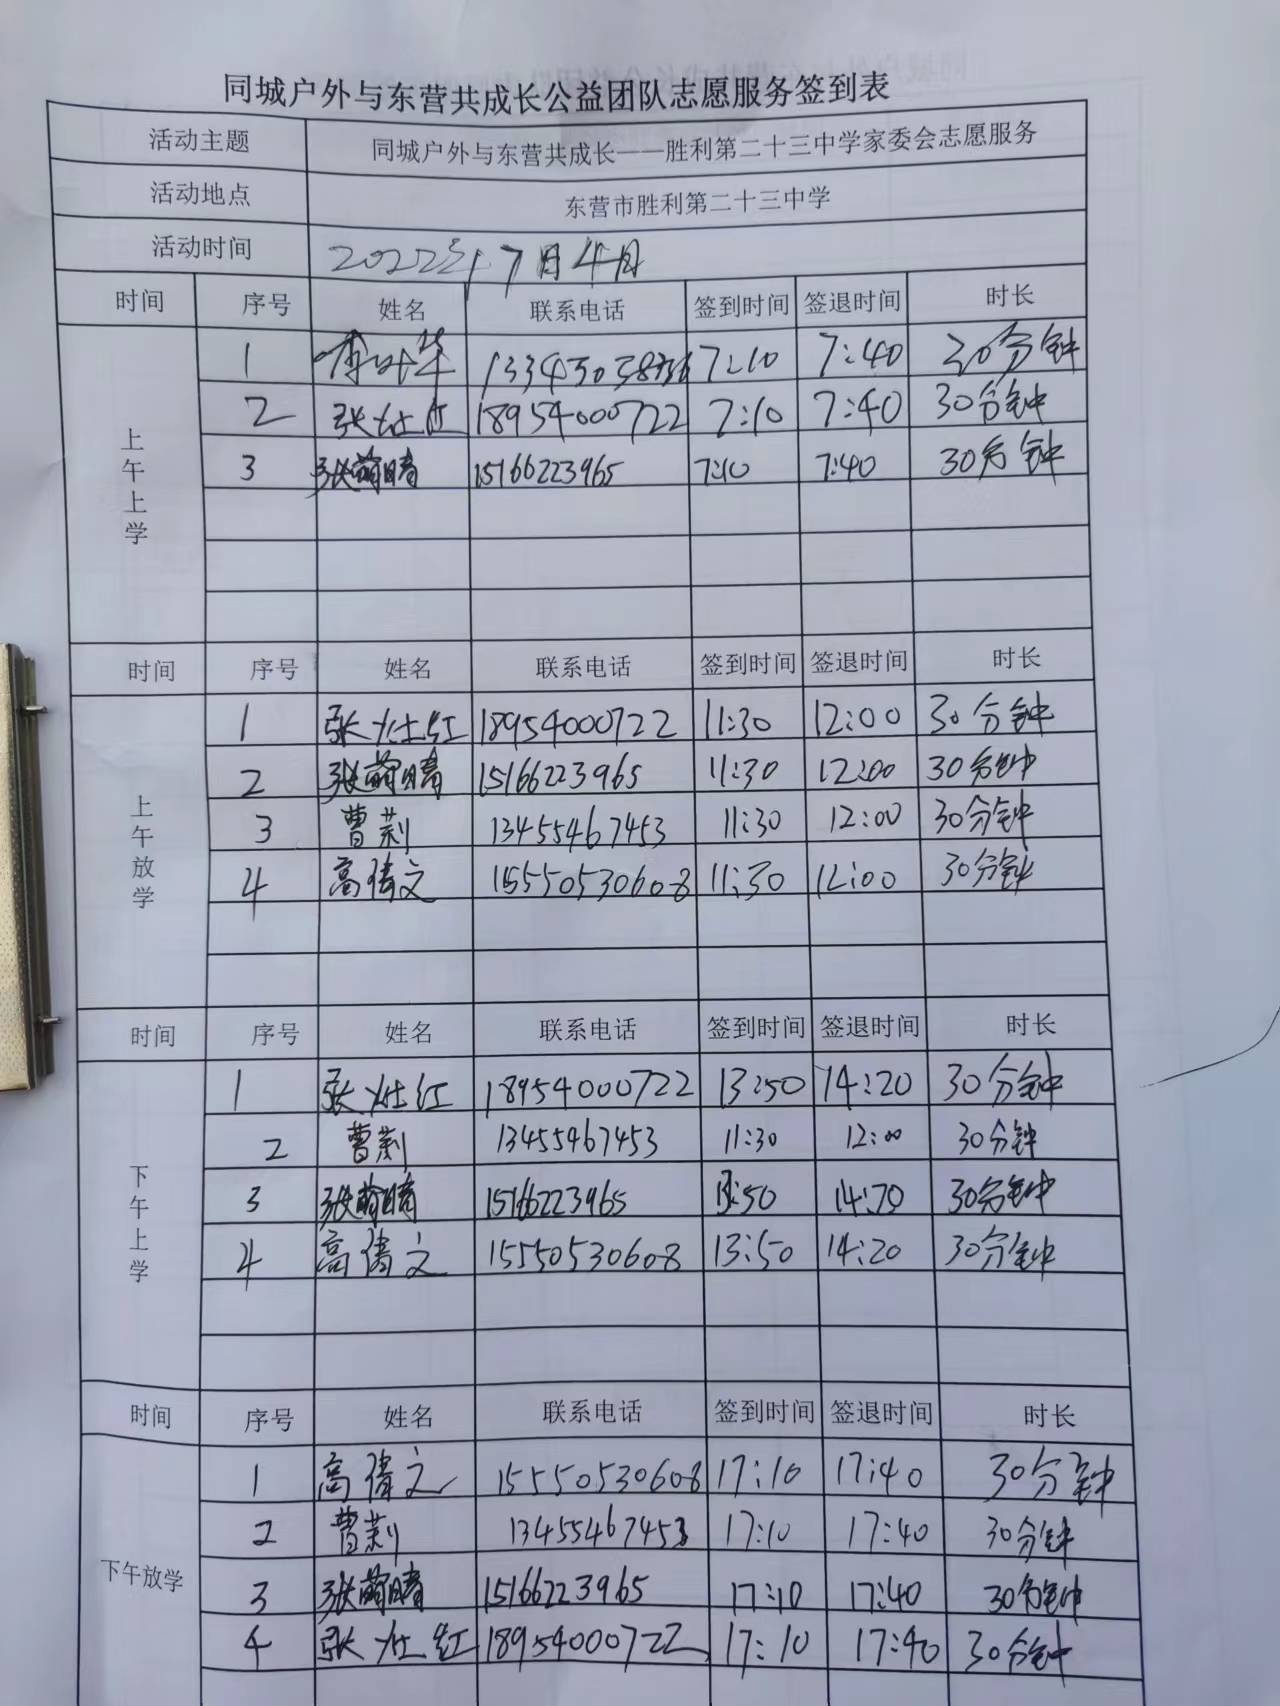 同城户外与东营共成长公益团队志愿服务签到表
活动主题 同城户外与东营共成长——胜利第二十三中学家委会志愿服务
活动地点 东营市胜利第二十三中学
活动时间 2022年7月4日
时间 序号 姓名 联系电话 签到时间 签退时间 时长
上午上学
1 7:10 7:40 30分钟
2 张灶红 18954000722 7:10 7:40 30分钟
3 张萌晴 15166223965 7:10 7:40 30分钟
时间 序号 姓名 联系电话 签到时间 签退时间 时长
上午放学
1 张灶红 18954000722 11:30 12:00 30分钟
2 张萌晴 15166223965 11:30 12:00 30分钟
3 曹莉 13455467453 11:30 12:00 30分钟
4 高倩文 15550530608 11:30 12:00 30分钟
时间 序号 姓名 联系电话 签到时间 签退时间 时长
下午上学
1 张灶红 18954000722 13:50 14:20 30分钟
2 曹莉 13455467453 11:30 12:00 30分钟
3 张萌晴 15166223965 13:50 14:20 30分钟
4 高倩文 15550530608 13:50 14:20 30分钟
时间 序号 姓名 联系电话 签到时间 签退时间 时长
下午放学
1 高倩文 15550530608 17:10 17:40 30分钟
2 曹莉 13455467453 17:10 17:40 30分钟
3 张萌晴 15166223965 17:10 17:40 30分钟
4 张灶红 18954000722 17:10 17:40 30分钟